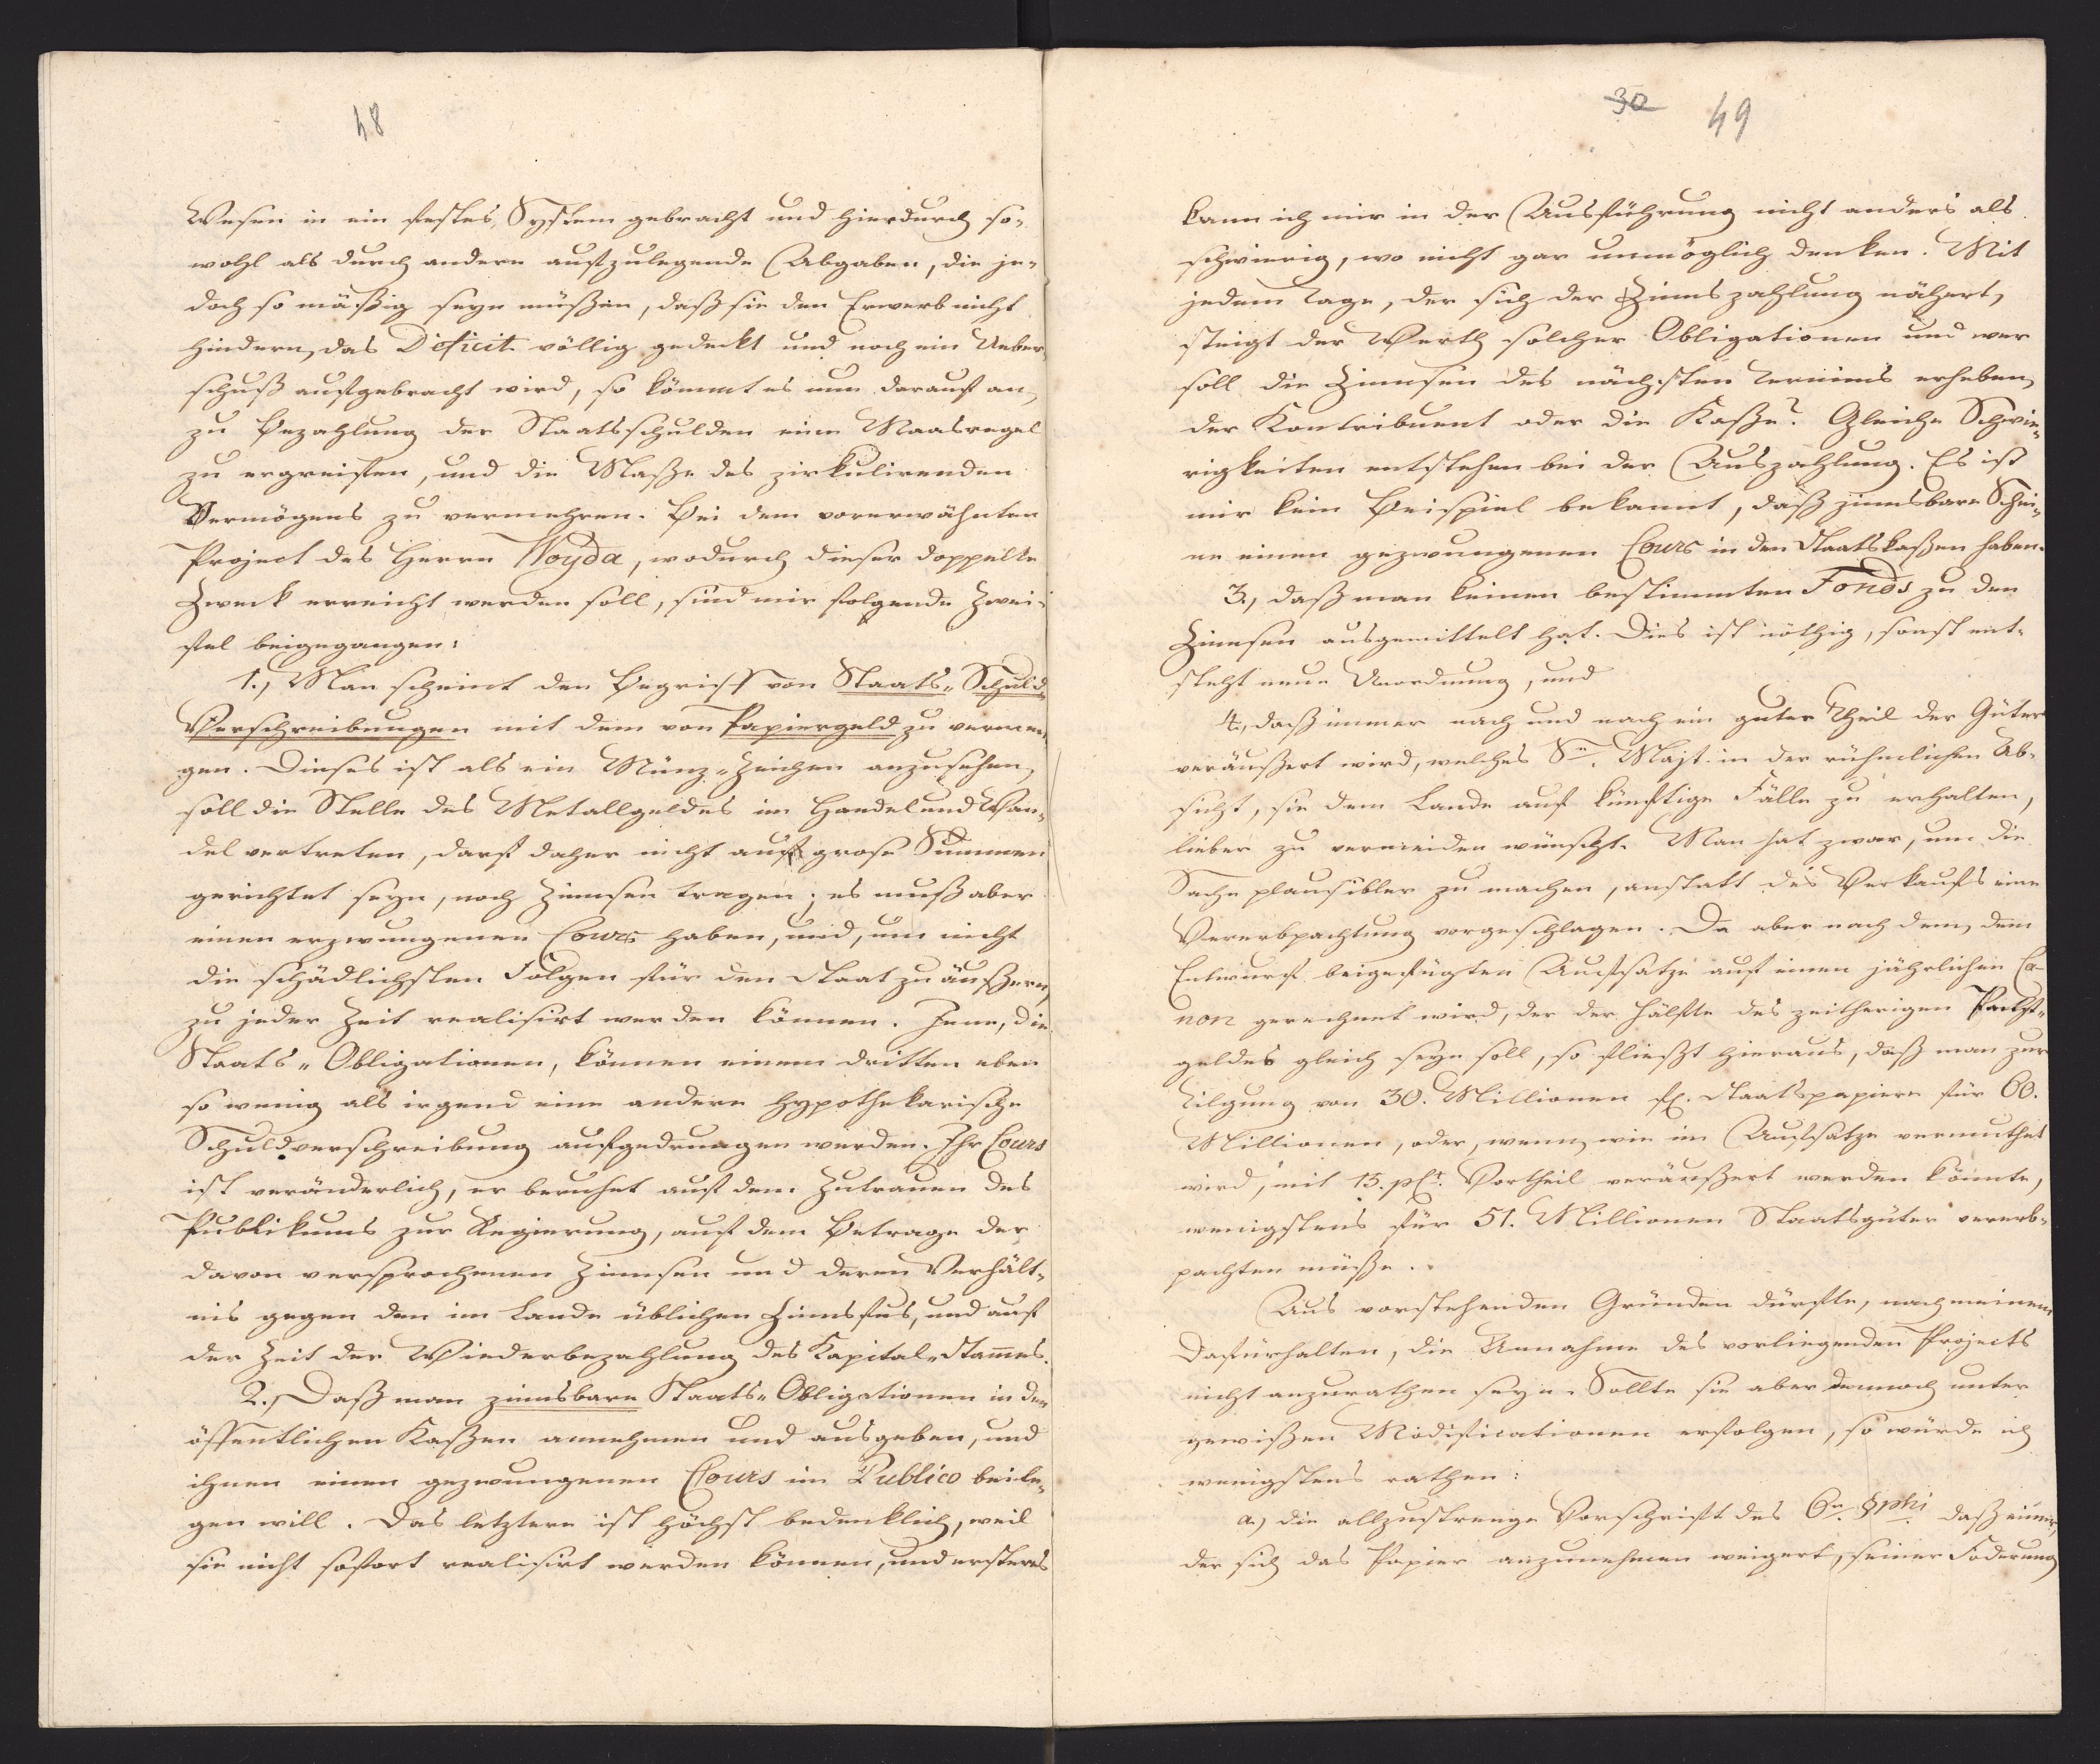 48
Wesen in ein festes System gebracht und hierdurch so-
wohl als durch andere aufzulegende Abgaben, die je-
doch so mäßig seyn müßen, daß sie den Erwerb nicht
hindern, das Deficit völlig gedeckt und noch ein Ueber-
schuß aufgebracht wird, so kömmt es nun darauf an,
zu Bezahlung der Staatsschulden eine Maasregel
zu ergreifen, und die Maße des zirkulirenden
Vermögens zu vermehren. Bei dem vorerwähnten
Project des Herrn Woyda, wodurch dieser doppelte
Zweck erreicht werden soll, sind mir folgende Zwei-
fel beigegangen:
1., Man scheint den Begriff von Staats-Schuld-
Verschreibungen mit dem von Papiergeld zu vermen-
gen. Dieses ist als ein Münz-Zeichen anzusehen,
soll die Stelle des Metallgeldes im Handel und Wan-
del vertreten, darf daher nicht auf grose Summen
gerichtet seyn, noch Zinnsen tragen; es muß aber
einen erzwungenen Cours haben, und, um nicht
die schädlichsten Folgen für den Staat zu äußern,
zu jeder Zeit realisirt werden können. Jene, die
Staats-Obligationen, können einem dritten eben
so wenig als irgend eine andere hypothekarische
Schuldverschreibung aufgedrungen werden. Ihr Cours
ist veränderlich, er beruhet auf dem Zutrauen des
Publikums zur Regierung, auf dem Betrage der
davon versprochenen Zinnsen und deren Verhält-
nis gegen den im Lande üblichen Zinnsfus, und auf
der Zeit der Wiederbezahlung des Kapital-Stammes.
2., Daß man zinnsbare Staats-Obligationen in den
öffentlichen Kaßen annehmen und ausgeben, und
ihnen einen gezwungenen Cours im Publico beile-
gen will. Das letztere ist höchst bedenklich, weil
sie nicht sofort realisirt werden können, und ersteres
30 49
kann ich mir in der Ausführung nicht anders als
schwierig, wo nicht gar unmöglich denken. Mit
jedem Tage, der sich der Zinnszahlung nähert,
steigt der Werth solcher Obligationen und wer
soll die Zinnsen des nächsten Termins erheben,
der Kontribuent oder die Kaße? Gleiche Schwie-
rigkeiten entstehen bei der Auszahlung. Es ist
mir kein Beispiel bekannt, daß zinnsbare Schei-
ne einen gezwungenen Cours in den Staatskaßen haben.
3., daß man keinen bestimmten Fonds zu den
Zinnsen ausgemittelt hat. Dies ist nöthig, sonst ent-
steht neue Unordnung, und
4., daß immer nach und nach ein guter Theil der Güter
veräußert wird, welches Se. Majt. in der rühmlichen Ab-
sicht, sie dem Lande auf künftige Fälle zu erhalten,
lieber zu vermeiden wünscht. Man hat zwar, um die
Sache plausibler zu machen, anstatt des Verkaufs eine
Vererbpachtung vorgeschlagen. Da aber nach dem, dem
Entwurf beigefügten Aufsatze auf einen jährlichen Ca-
non gerechnet wird, der der Hälfte des zeitherigen Pacht-
geldes gleich seyn soll, so fließt hieraus, daß man zur
Tilgung von 30. Millionen fl. Staatspapiere für 60.
Millionen, oder, wenn, wie im Aufsatze vermuthet
wird, mit 15. pCt. Vortheil veräußert werden könnte,
wenigstens für 51. Millionen Staatsgüter vererb-
pachten müße.
Aus vorstehenden Gründen dürfte, nach meinem
Dafürhalten, die Annahme des vorliegenden Projects
nicht anzurathen seyn. Sollte sie aber dennoch unter
gewißen Modificationen erfolgen, so würde ich
wenigstens rathen:
a.) die allzustrenge Vorschrift des 6n. §phi daß einer,
der sich das Papier anzunehmen weigert, seiner Foderung